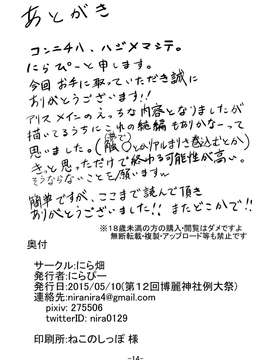 あとがき
コンニチハ、ハジメマシテ。
にらぴーと申します。
今回お手に取っていただき誠に
ありがとうございます!!
アリスメインのえっちな内容となりましたが
描いてるうちにこれの続編もありかなーって
思いました。(薬〇とかリアルまりさ込むとか)
服
きっと思っただけで終わる可能性が高い。
そうならないことを願いますん
簡単ですが、ここまで読んで頂き
ありがとうございました!!またどこかで!!
※18歳未満の方の購入・閲覧はダメですよ
無断転載・複製・アップロード等も禁止です
奥付
サークル:にら畑
発行者:にらぴー
発行日:2015/05/10(第12回博麗神社例大祭)
連絡先:niranira4@gmail.com
pixiv: 275506
twitterID: nira0129
印刷所:ねこのしっぽ 様
-14-